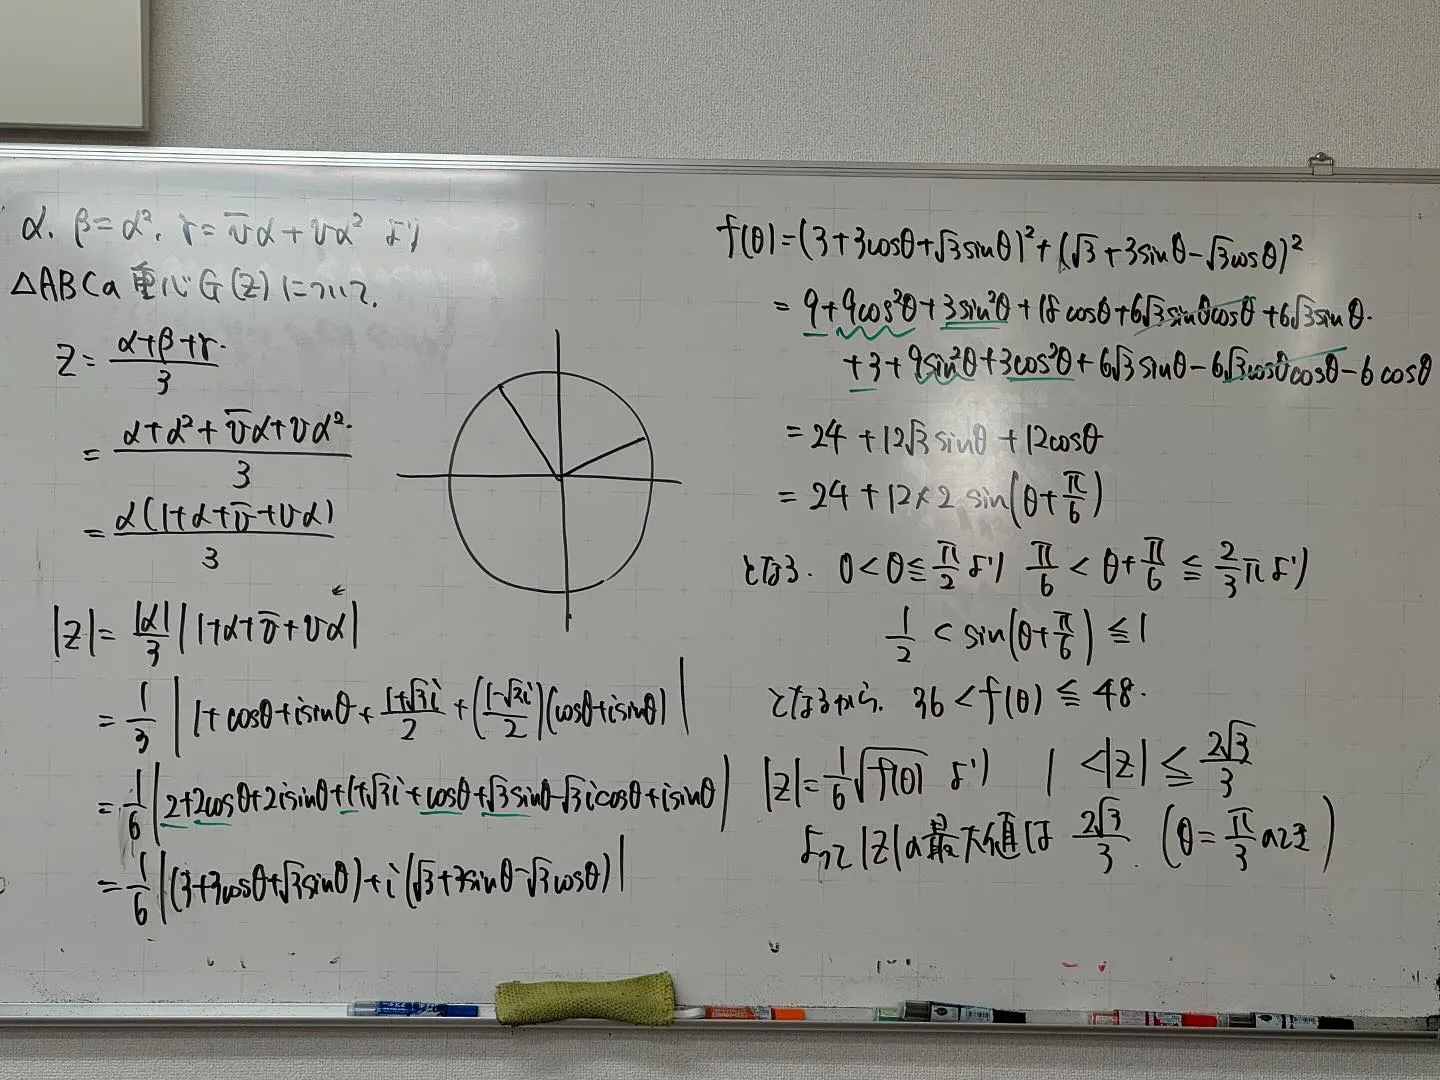 α, β=α², γ=v̄α+vα² より
△ABCの重心G(z)について,
z=(α+β+γ)/3
=(α+α²+v̄α+vα²)/3
=α(1+α+v̄+vα)/3
|z|=|α|/3 |1+α+v̄+vα|
=1/3 |1+cosθ+isinθ+(1+√3i)/2+((1-√3i)/2)(cosθ+isinθ)|
=1/6 |2+2cosθ+2isinθ+1+√3i+cosθ+√3sinθ-√3icosθ+isinθ|
=1/6 |(3+3cosθ+√3sinθ)+i(√3+3sinθ-√3cosθ)|
f(θ)=(3+3cosθ+√3sinθ)²+(√3+3sinθ-√3cosθ)²
=9+9cos²θ+3sin²θ+18cosθ+6√3sinθcosθ+6√3sinθ
+3+9sin²θ+3cos²θ+6√3sinθ-6√3cosθcosθ-6cosθ
=24+12√3sinθ+12cosθ
=24+12×2sin(θ+π/6)
となる. 0<θ≦π/2より π/6<θ+π/6≦2/3πより
1/2<sin(θ+π/6)≦1
となるから, 36<f(θ)≦48.
|z|=1/6√f(θ) より 1<|z|≦2√3/3
よって|z|の最大値は 2√3/3. (θ=π/3のとき)